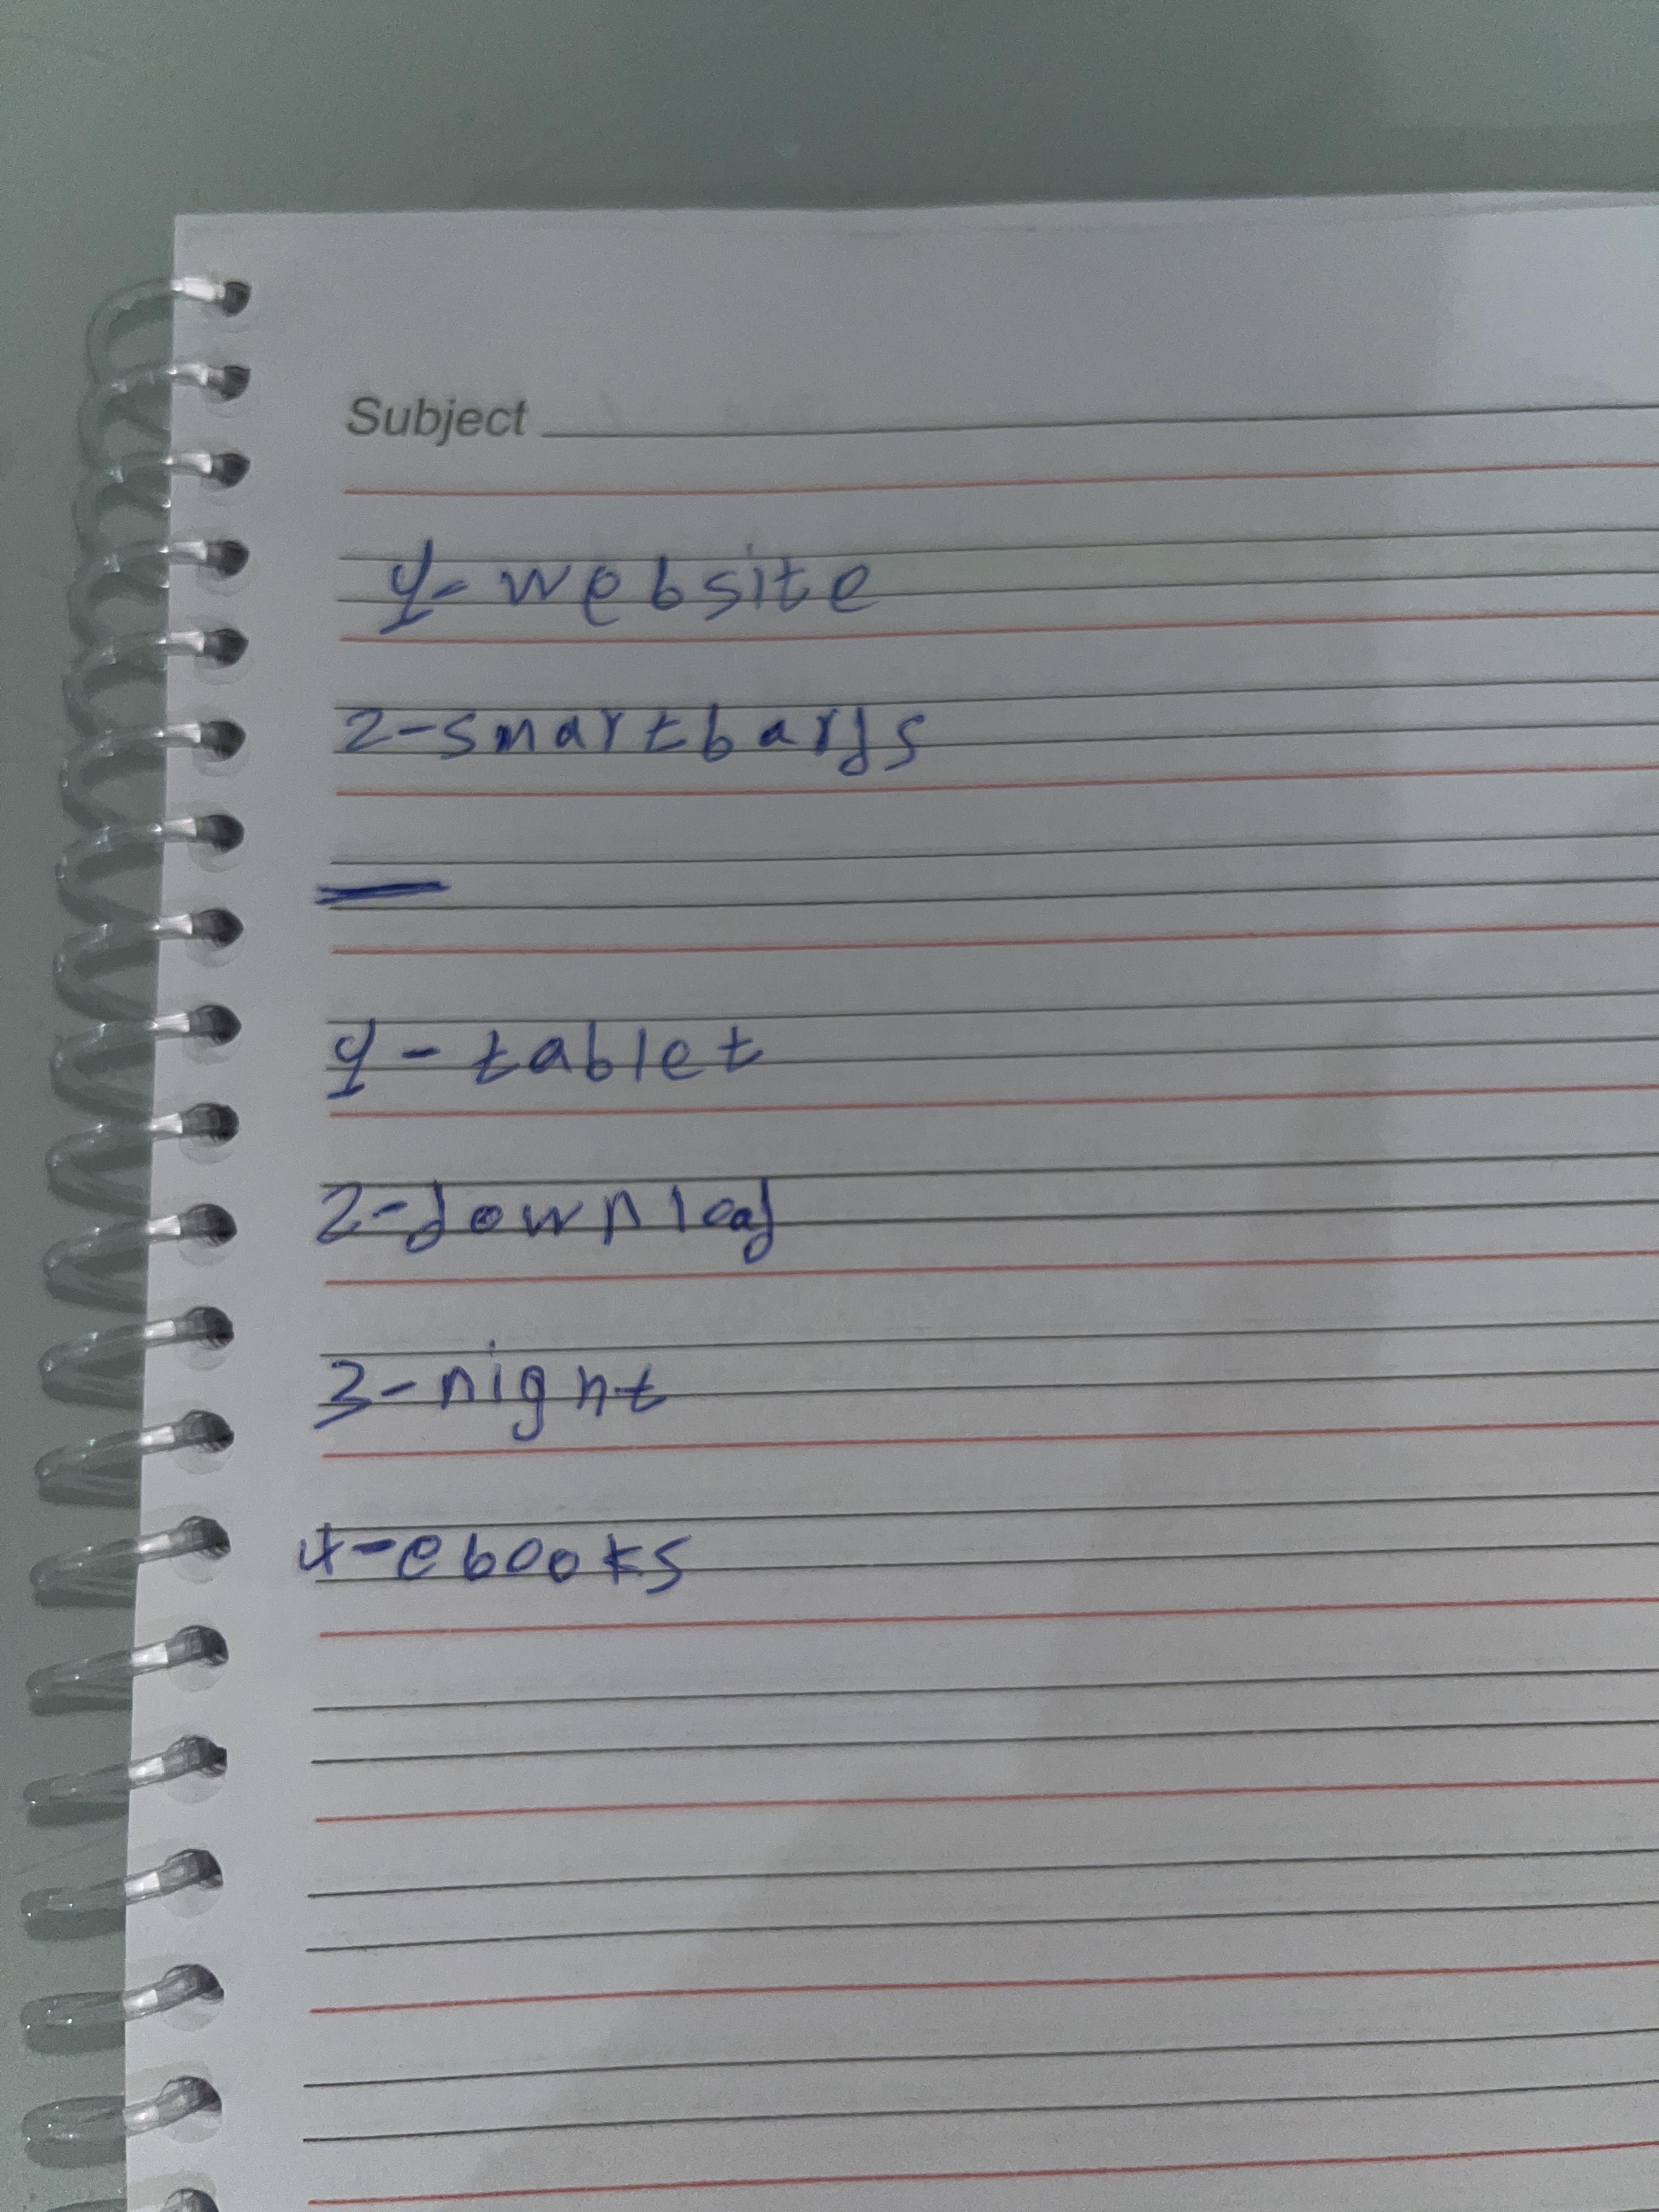 Subject
1- website
2-smartbards
1-tablet
2-downlead
3-night
4-ebooks